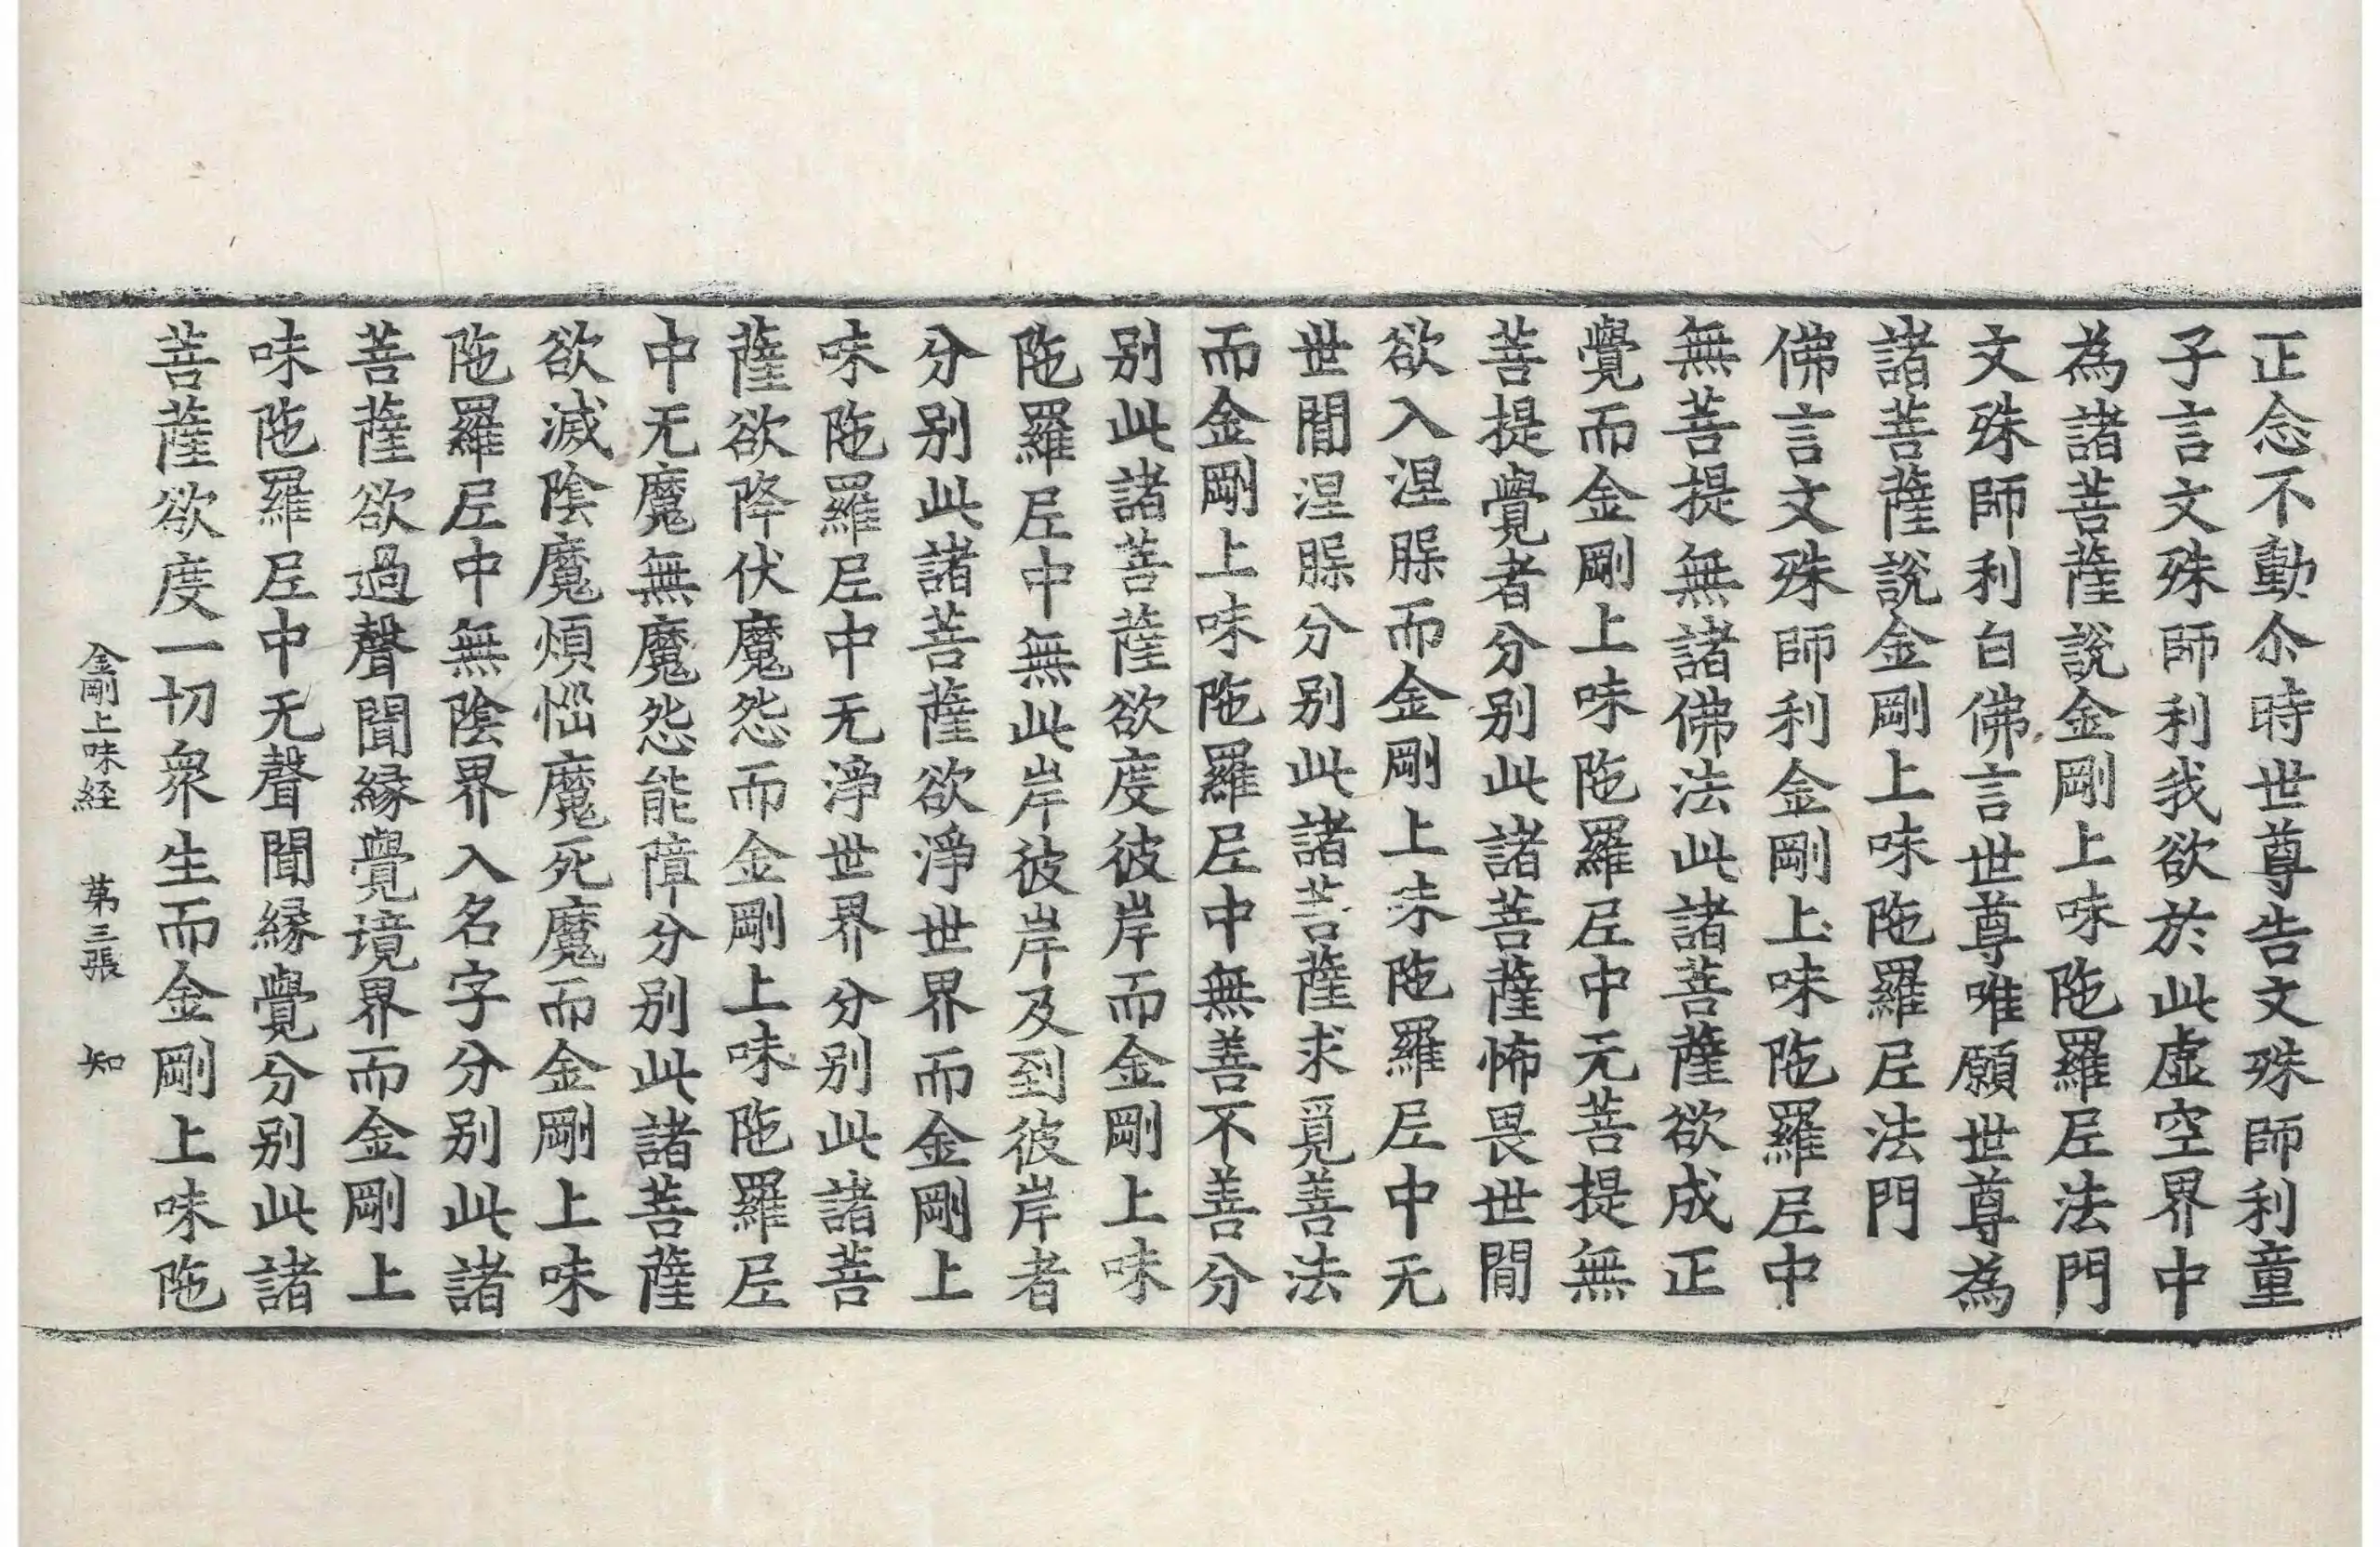 正念不動尒時世尊告文殊師利童
子言文殊師利我欲於此虛空界中
為諸菩薩說金剛上味陁羅𡰱法門
文殊師利白佛言世尊唯願世尊為
諸菩薩說金剛上味陁羅𡰱法門
佛言文殊師利金剛上味陁羅𡰱中
無菩提無諸佛法此諸菩薩欲成正
覺而金剛上味陁羅𡰱中无菩提無
菩提覺者分別此諸菩薩怖畏世閒
欲入涅䐺而金剛上味陁羅𡰱中无
世閒涅䐺分別此諸菩薩求覓善法
而金剛上味陁羅𡰱中無善不善分
別此諸菩薩欲度彼岸而金剛上味
陁羅𡰱中無此岸彼岸及到彼岸者
分別此諸菩薩欲淨世界而金剛上
味陁羅𡰱中无淨世界分別此諸菩
薩欲降伏魔怨而金剛上味陁羅𡰱
中无魔無魔怨能障分別此諸菩薩
欲滅陰魔煩惱魔死魔而金剛上味
陁羅𡰱中無陰界入名字分別此諸
菩薩欲過聲聞緣覺境界而金剛上
味陁羅𡰱中无聲聞緣覺分別此諸
菩薩欲度一切衆生而金剛上味陁
金剛上味経 苐三張 知